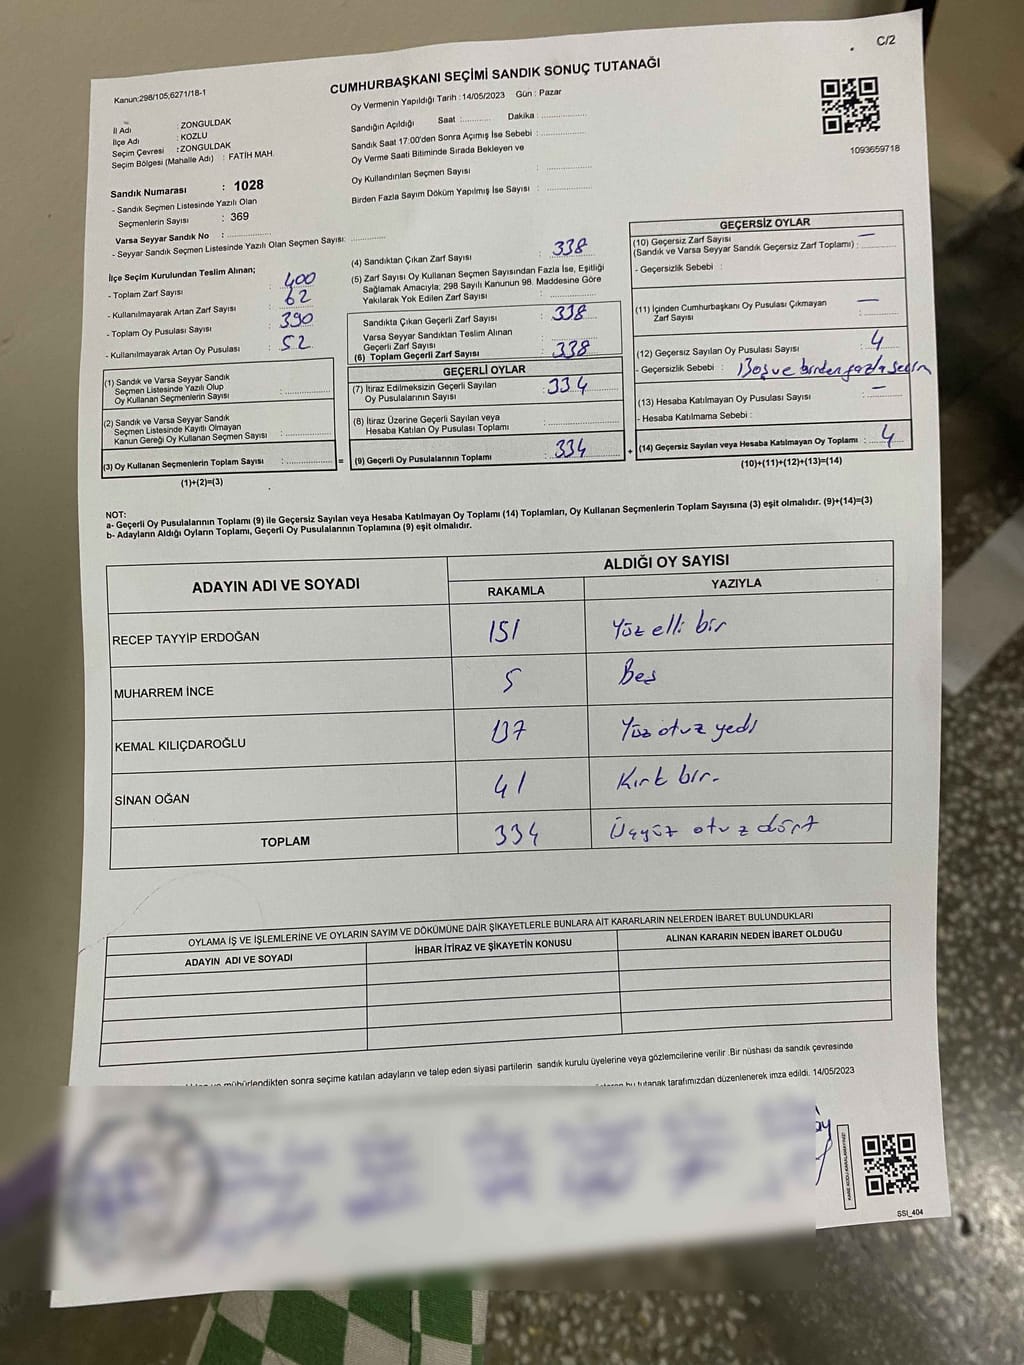 C/2
Kanun:298/105;6271/18-1
CUMHURBAŞKANI SEÇİMİ SANDIK SONUÇ TUTANAĞI
Oy Vermenin Yapıldığı Tarih : 14/05/2023 Gün : Pazar
Sandığın Açıldığı Saat :........... Dakika :...............
Sandık Saat 17:00'den Sonra Açımış İse Sebebi :...............
Oy Verme Saati Bitiminde Sırada Bekleyen ve
Oy Kullandırılan Seçmen Sayısı :...............
Birden Fazla Sayım Döküm Yapılmış İse Sayısı :...............
1093659718
İl Adı : ZONGULDAK
İlçe Adı : KOZLU
Seçim Çevresi : ZONGULDAK
Seçim Bölgesi (Mahalle Adı) : FATİH MAH.
Sandık Numarası : 1028
- Sandık Seçmen Listesinde Yazılı Olan
Seçmenlerin Sayısı : 369
Varsa Seyyar Sandık No :...............
- Seyyar Sandık Seçmen Listesinde Yazılı Olan Seçmen Sayısı: ............
İlçe Seçim Kurulundan Teslim Alınan;
- Toplam Zarf Sayısı : 400
- Kullanılmayarak Artan Zarf Sayısı : 62
- Toplam Oy Pusulası Sayısı : 390
- Kullanılmayarak Artan Oy Pusulası : 52
(1) Sandık ve Varsa Seyyar Sandık
Seçmen Listesinde Yazılı Olup
Oy Kullanan Seçmenlerin Sayısı :...............
(2) Sandık ve Varsa Seyyar Sandık
Seçmen Listesinde Kayıtlı Olmayan
Kanun Gereği Oy Kullanan Seçmen Sayısı :...............
(3) Oy Kullanan Seçmenlerin Toplam Sayısı :............... =
(1)+(2)=(3)
(4) Sandıktan Çıkan Zarf Sayısı : 338
(5) Zarf Sayısı Oy Kullanan Seçmen Sayısından Fazla İse, Eşitliği
Sağlamak Amacıyla; 298 Sayılı Kanunun 98. Maddesine Göre
Yakılarak Yok Edilen Zarf Sayısı :...............
Sandıkta Çıkan Geçerli Zarf Sayısı : 338
Varsa Seyyar Sandıktan Teslim Alınan
Geçerli Zarf Sayısı
(6) Toplam Geçerli Zarf Sayısı : 338
GEÇERLİ OYLAR
(7) İtiraz Edilmeksizin Geçerli Sayılan
Oy Pusulalarının Sayısı : 334
(8) İtiraz Üzerine Geçerli Sayılan veya
Hesaba Katılan Oy Pusulası Toplamı :...............
(9) Geçerli Oy Pusulalarının Toplamı : 334 +
GEÇERSİZ OYLAR
(10) Geçersiz Zarf Sayısı —
(Sandık ve Varsa Seyyar Sandık Geçersiz Zarf Toplamı) :............
- Geçersizlik Sebebi :
(11) İçinden Cumhurbaşkanı Oy Pusulası Çıkmayan —
Zarf Sayısı :............
(12) Geçersiz Sayılan Oy Pusulası Sayısı : 4
- Geçersizlik Sebebi : Boş ve birden fazla seçim
(13) Hesaba Katılmayan Oy Pusulası Sayısı : —
- Hesaba Katılmama Sebebi :
(14) Geçersiz Sayılan veya Hesaba Katılmayan Oy Toplamı : 4
(10)+(11)+(12)+(13)=(14)
NOT:
a- Geçerli Oy Pusulalarının Toplamı (9) ile Geçersiz Sayılan veya Hesaba Katılmayan Oy Toplamı (14) Toplamları, Oy Kullanan Seçmenlerin Toplam Sayısına (3) eşit olmalıdır. (9)+(14)=(3)
b- Adayların Aldığı Oyların Toplamı, Geçerli Oy Pusulalarının Toplamına (9) eşit olmalıdır.
ADAYIN ADI VE SOYADI ALDIĞI OY SAYISI
RAKAMLA YAZIYLA
RECEP TAYYİP ERDOĞAN 151 Yüz elli bir
MUHARREM İNCE 5 Beş
KEMAL KILIÇDAROĞLU 137 Yüz otuz yedi
SİNAN OĞAN 41 Kırk bir.
TOPLAM 334 Üçyüz otuz dört
OYLAMA İŞ VE İŞLEMLERİNE VE OYLARIN SAYIM VE DÖKÜMÜNE DAİR ŞİKAYETLERLE BUNLARA AİT KARARLARIN NELERDEN İBARET BULUNDUKLARI
ADAYIN ADI VE SOYADI İHBAR İTİRAZ VE ŞİKAYETİN KONUSU ALINAN KARARIN NEDEN İBARET OLDUĞU
mühürlendikten sonra seçime katılan adayların ve talep eden siyasi partilerin sandık kurulu üyelerine veya gözlemcilerine verilir .Bir nüshası da sandık çevresinde
bu tutanak tarafımızdan düzenlenerek imza edildi. 14/05/2023
SSI_404